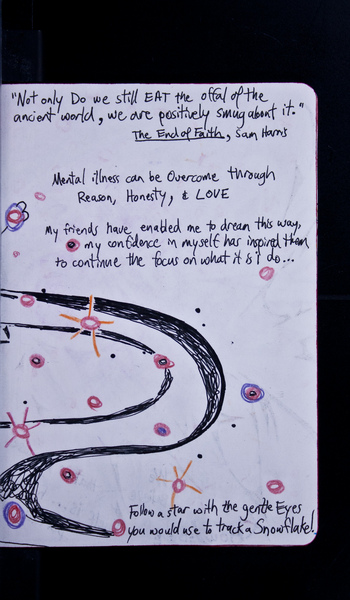 "Not only Do we still EAT the offal of the
ancient world, we are positively smug about it."
The End of Faith, Sam Harris
Mental illness can be Overcome through
Reason, Honesty, & LOVE
My friends have enabled me to dream this way,
my confidence in myself has inspired them
to continue the focus on what it is I do...
Follow a star with the gentle Eyes
you would use to track a Snowflake!